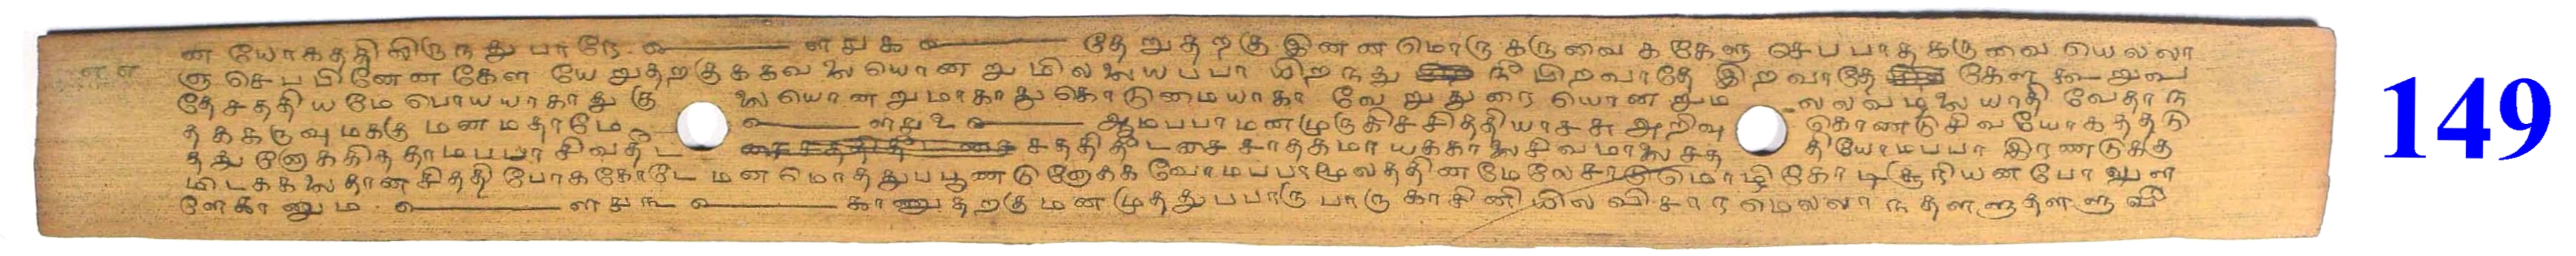 ன யோகததிலிருநது பாரே ள௰க தேறுதறகு இனன மொரு கருவை க கேளு செபபாத கருவை யெலலா
ளு செபபினேன கேள யேறுதறகுககவலை யொன றுமிலலையபபா யிறநது நீ யிறவாதே இறவாதே கேள கூறுவ
தேசததியமே பொயயாகாது கு லை யொன றுமாகாது கொடுமையாகா வேறுதுரை யொன றும லலவடிலை யாதி வேதாந
தககருவு மககு மனமதாமே ள௰உ ஆமபபாமனமுருகிச சிததியாசசு அறிவு கொணடு சிவயோகததடு
தது னோககிததாமபபா சிவதி சததிதி சாததமாயககாலசிவமாலசத தியோமபபா இரணடுககு
மிடககலைதான சிததி போககோடே மன மொததுபபூணடு னோகக வோமபபாமூலததின மேலேசாடுமொழி கோடி சூரியன போலுள
ளேகாணும ள௰ங காணுதறகு மன முததுபபாரு பாரு காசினியில விசாரமெலலா ந தளளுதளளு வீ
149